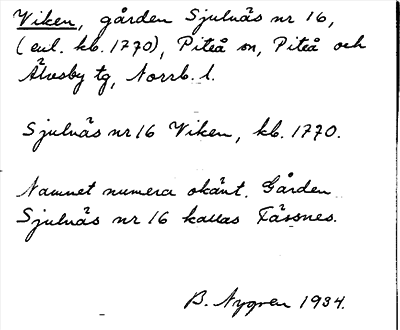 Viken, gården Sjulnäs nr 16,
(enl. kb. 1770), Piteå sn, Piteå och
Älvsby tg, Norrb. l.
Sjulnäs nr 16 Viken, kb. 1770.
Namnet numera okänt. Gården
Sjulnäs nr 16 kallas Fässnes.
B. Nygren 1934.